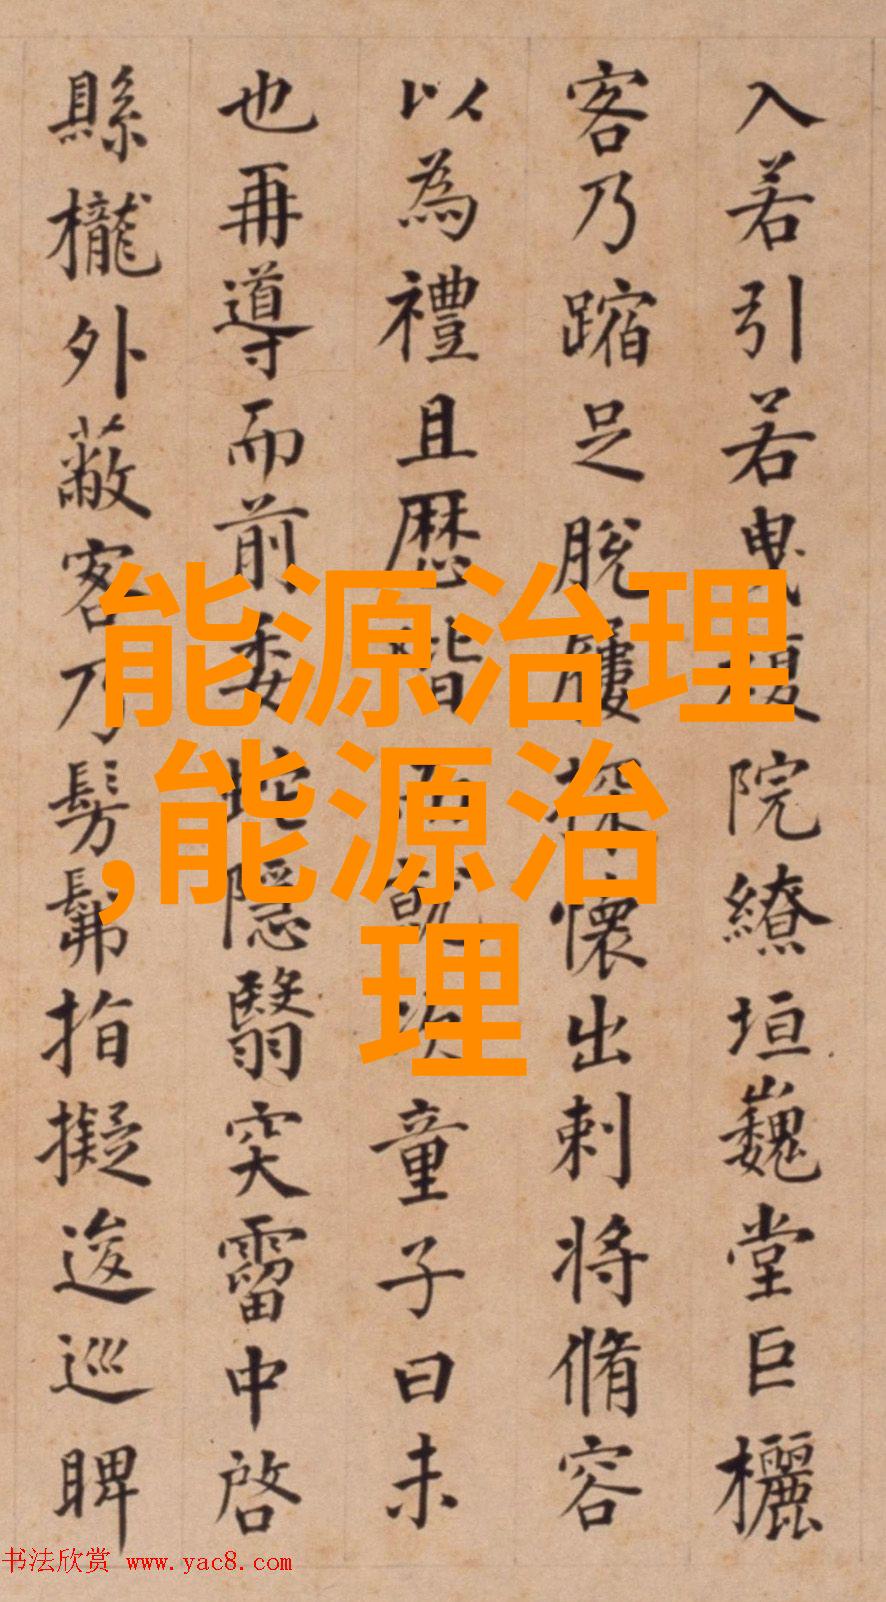 入若引若曳複院繚垣巍堂巨欐
客乃蹜足脫屨探懷出刺將脩容
以為禮且歷階而就次童子曰未
也再導而前委蛇隱翳穾霤中啓
縣櫳外蔽客乃髣髴指擬逡巡睥
能源治理
,能源治
理
书法欣赏 www.yac8.com